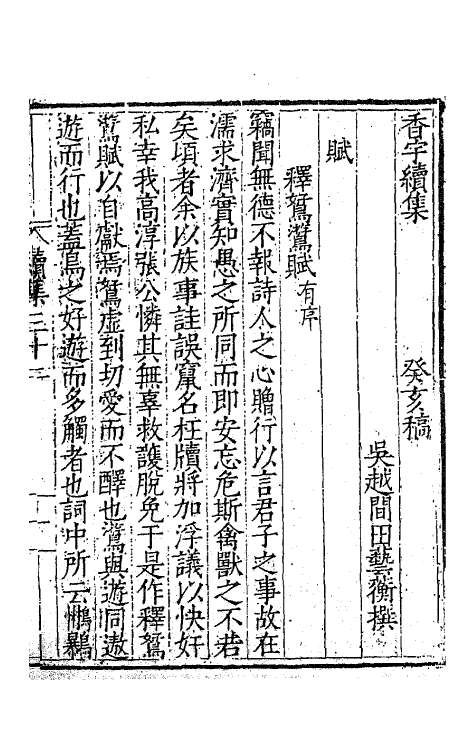 香宇續集　癸亥稿
吳越間田藝衡撰
賦
釋鴛鴦賦有序
竊聞無德不報詩人之心贈行以言君子之事故在
濡求濟實知愚之所同而即安忘危斯禽獸之不若
矣頃者余以族事詿誤竄名枉牘將加浮議以快奸
私幸我高淳張公憐其無辜救護脫免于是作釋鴛
鴦賦以自獻焉鴛虛到切愛而不醳也鴦與遊同遨
遊而行也蓋鳥之好遊而多觸者也詞中所云
續集三十